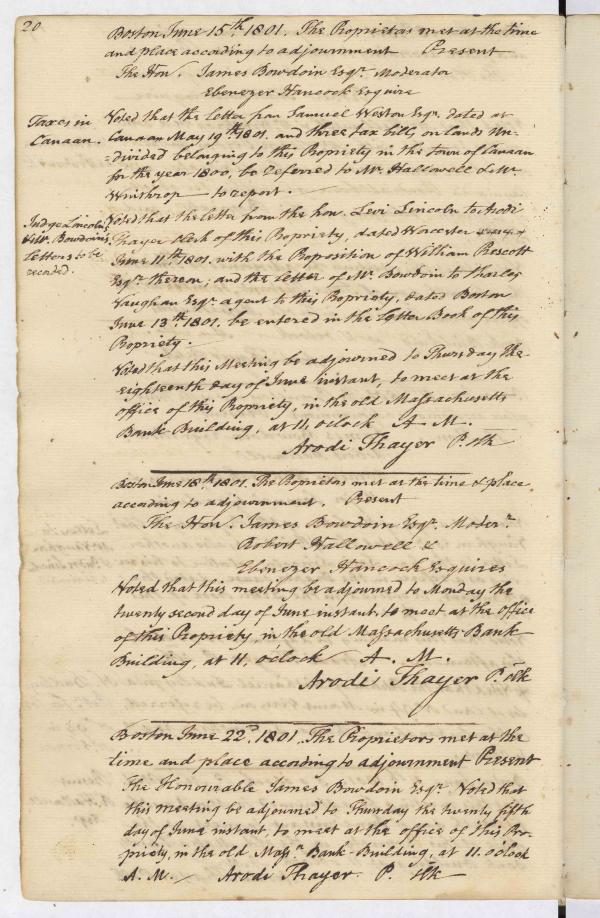 20
Boston June 15th. 1801. The Proprietors met at the time
and place according to adjournment Present
The Hon. James Bowdoin Esqr. Moderator
Ebenezer Hancock Esquire
Taxes in
Canaan.
Voted that the letter from Samuel Weston Esqr. dated at
Canaan May 19th 1801. and three tax bills, on lands Un-
=divided belonging to this Propriety in the town of Canaan
for the year 1800, be referred to Mr. Hallowell & Mr.
Winthrop to report.
Judge Lincoln's
& Mr. Bowdoin's
letters to be
recorded.
Voted that the letter from the hon. Levi Lincoln to Arodi
Thayer Clerk of this Propriety, dated Worcester
June 11th 1801. with the Proposition of William Prescott
Esqr. thereon; and the letter of Mr. Bowdoin to Charles
Vaughan Esqr. agent to this Propriety, dated Boston
June 13th. 1801. be entered in the letter Book of this
Propriety.
Voted that this Meeting be adjourned to Thursday the
eighteenth day of June instant, to meet at the
office of this Propriety, in the old Massachusetts
Bank-Building, at 11, o'clock A M.
Arodi Thayer P. Clk
Boston June 18th. 1801. The Proprietors met at the time & place
according to adjournment. Present
The Hon. James Bowdoin Esqr. Moderr.
Robert Hallowell &
Ebenezer Hancock Esquires
Voted that this meeting be adjourned to Monday the
twenty second day of June instant. to meet at the office
of this Propriety, in the old Massachusetts Bank
Building, at 11. o'clock A. M.
Arodi Thayer P. Clk
Boston June 22d. 1801. The Proprietors met at the
time and place according to adjournment Present
The Honourable James Bowdoin Esqr. Voted that
this meeting be adjourned to Thursday the twenty fifth
day of June instant, to meet at the office of this Pro-
priety, in the old Massa. Bank-Building, at 11. o'clock
A. M. Arodi Thayer. P. Clk